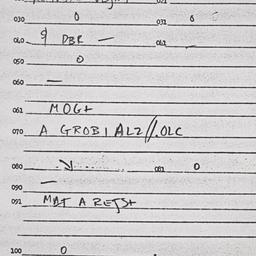 030 0 031 0
040 9 DBR — 042 —
050 0
060 —
061 MOG+
070 A GROBIALZ//.OLC
080 081 0
090 —
091 MAT A RETS+
100 0